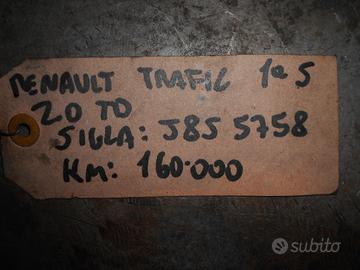 RENAULT TRAFIC 1a S
2.0 TD
SIGLA: J8S 5758
KM: 160.000
subito